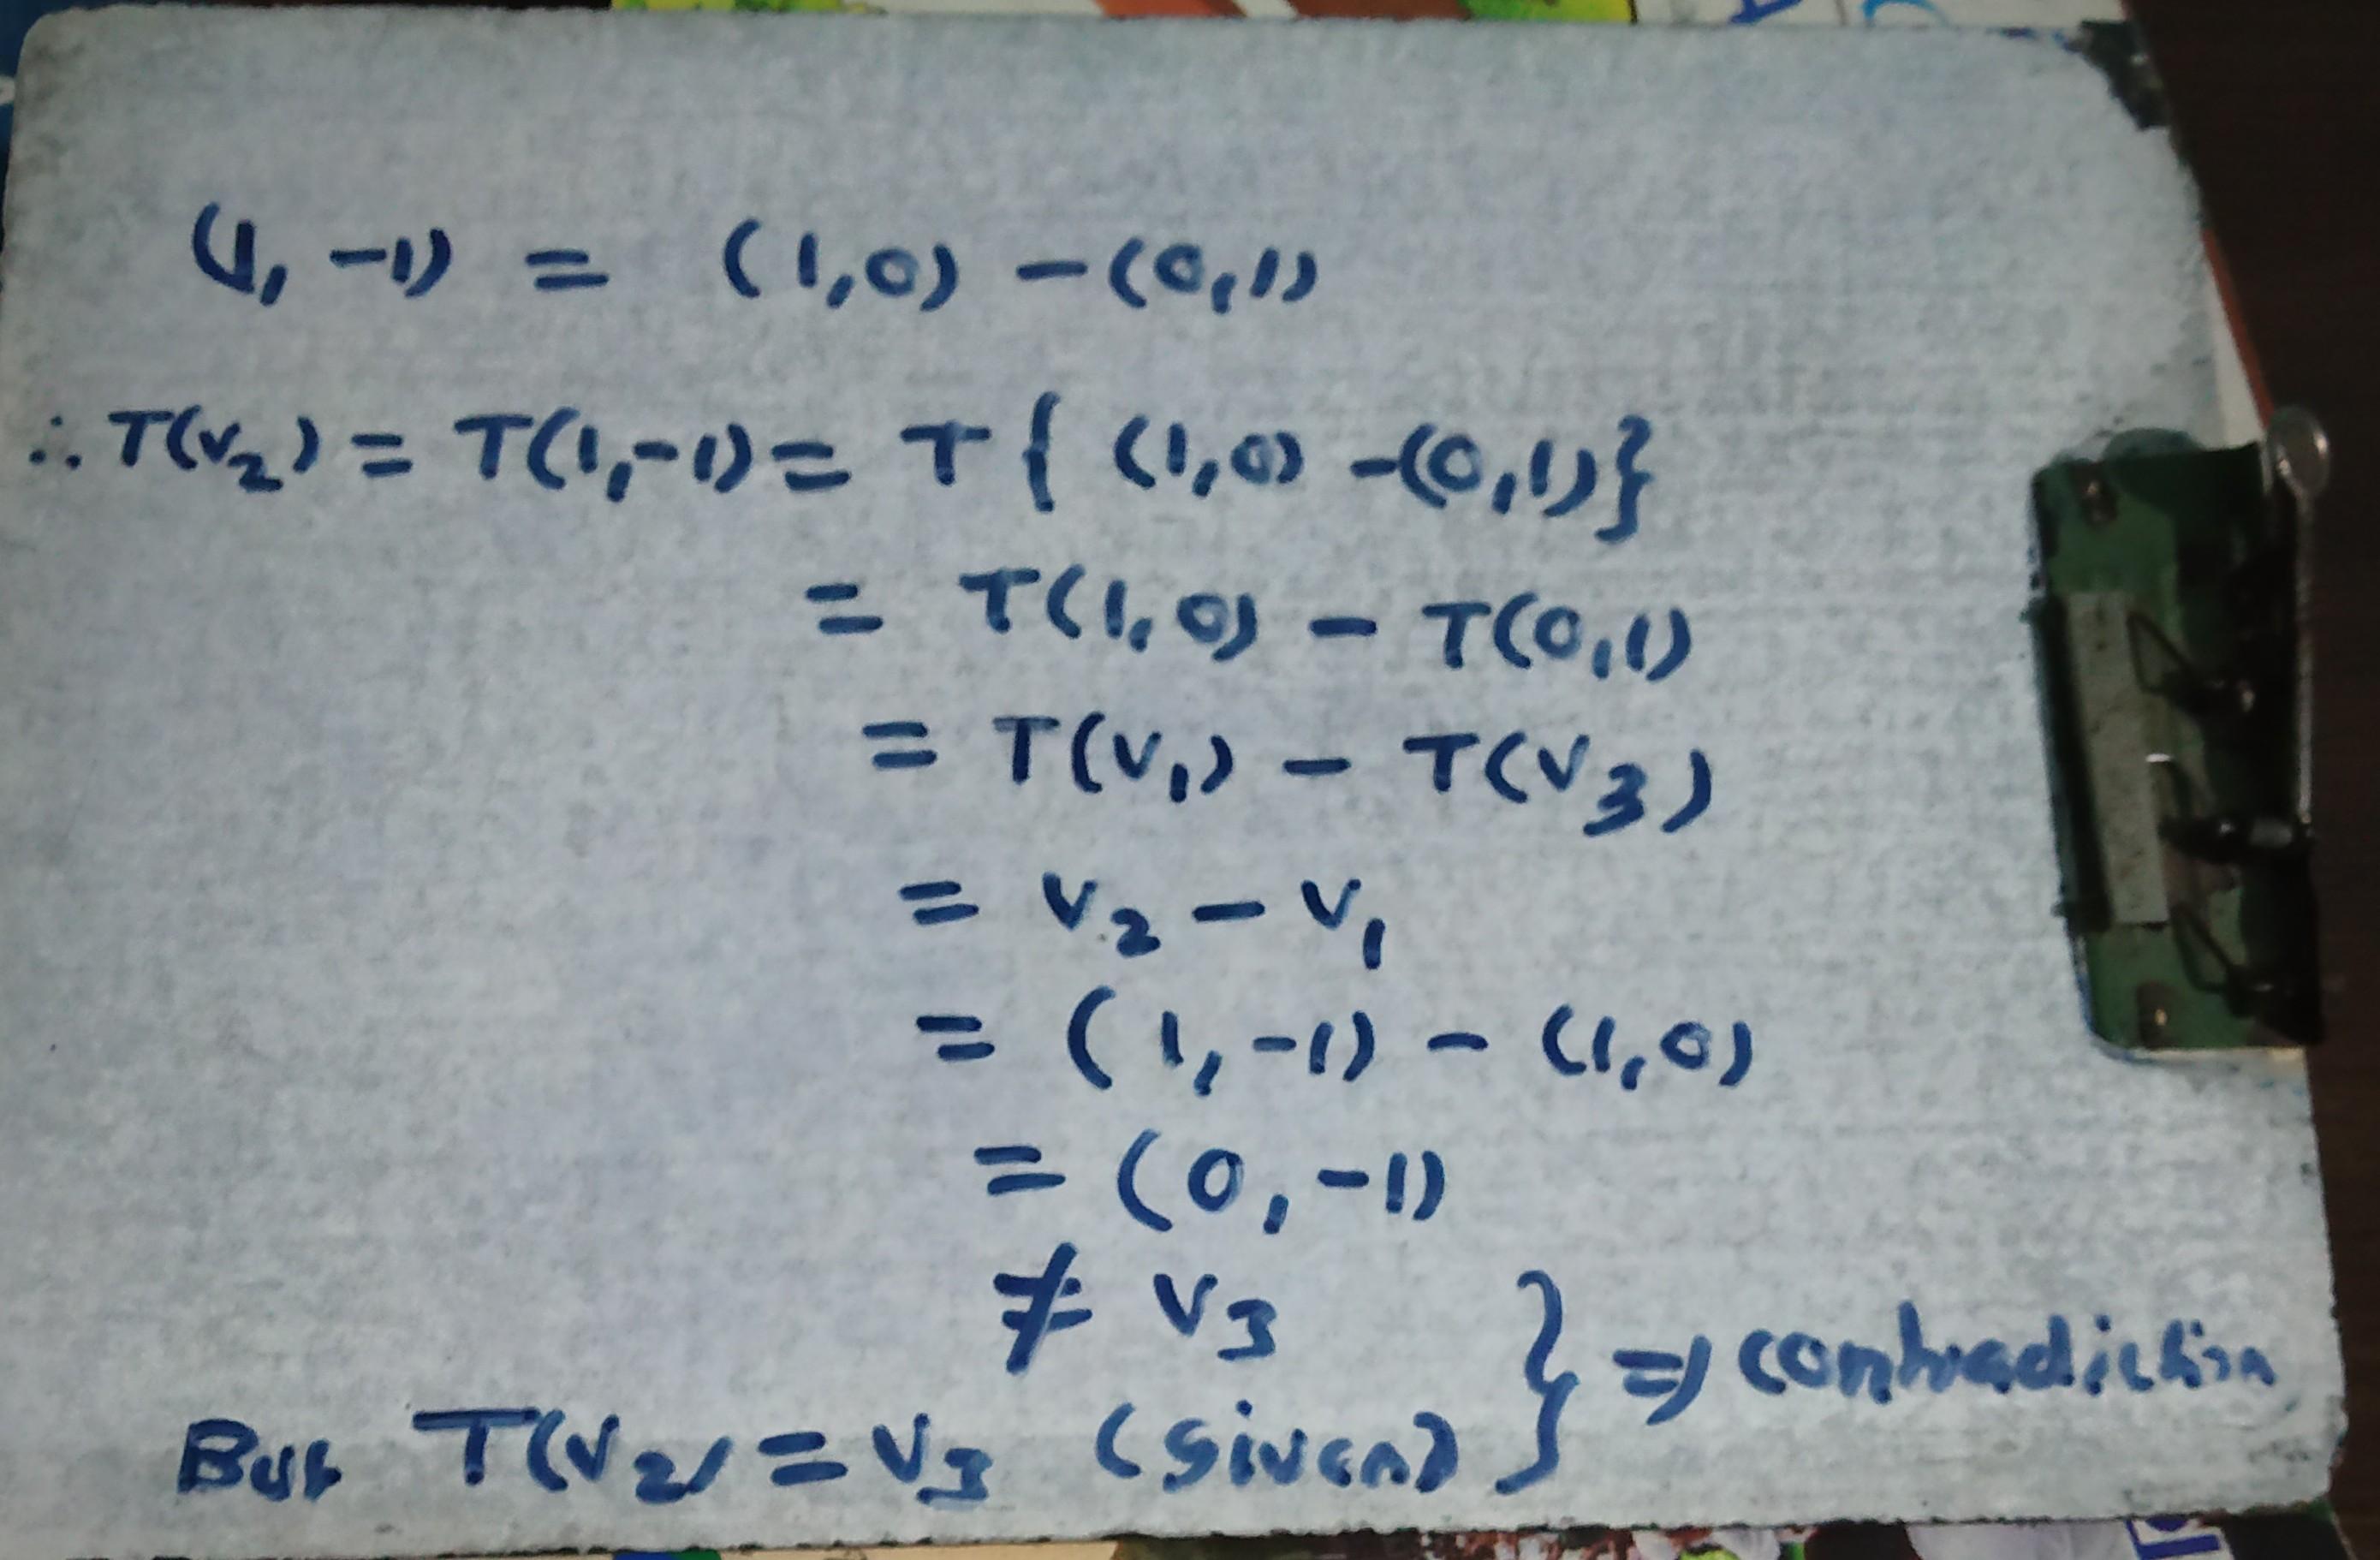 (1, -1) = (1,0) - (0,1)
∴ T(v₂) = T(1,-1) = T { (1,0) - (0,1)}
= T(1,0) - T(0,1)
= T(v₁) - T(v₃)
= v₂ - v₁
= (1,-1) - (1,0)
= (0,-1)
≠ v₃
But T(v₂) = v₃ (given) } ⇒ contradiction